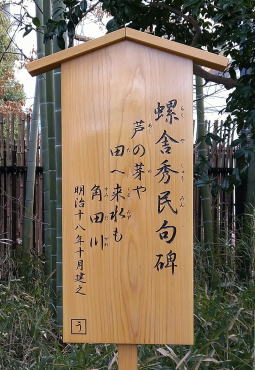 螺舎秀民句碑
芦の芽や
田へ来水も
角田川
明治十八年十月建之
う